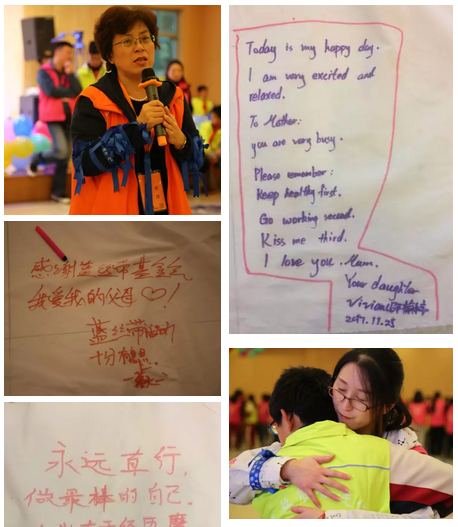 感谢蓝丝带基金会
我爱我的父母♡!
蓝丝带活动
十分
永远直行,
做最棒的自己.
Today is my happy day.
I am very excited and
relaxed.
To Mother:
you are very busy.
Please remember:
Keep healthy first.
Go working second.
Kiss me third.
I love you. Mum.
Your daughter
Vivian
2017.11.25